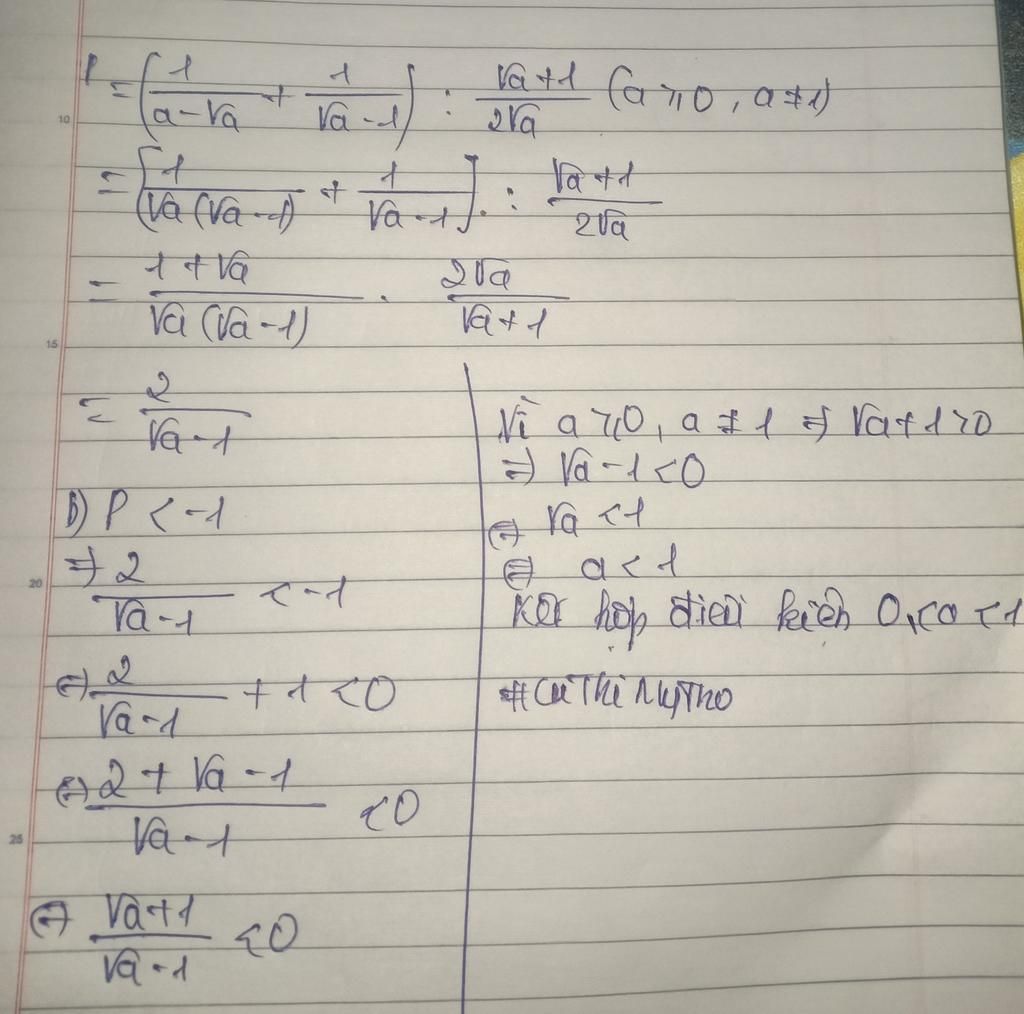 P = (1/(a-√a) + 1/(√a-1)) : (√a+1)/(2√a) (a ≥ 0, a ≠ 1)
10
= [1/(√a(√a-1)) + 1/(√a-1)] . : (√a+1)/(2√a)
= (1+√a)/(√a(√a-1)) . (2√a)/(√a+1)
15
= 2/(√a-1)
b) P < -1
20
=> 2/(√a-1) < -1
<=> 2/(√a-1) + 1 < 0
<=> (2+√a-1)/(√a-1) < 0
25
<=> (√a+1)/(√a-1) < 0
Vì a ≥ 0, a ≠ 1 => √a+1 > 0
=> √a-1 < 0
<=> √a < 1
<=> a < 1
Kết hợp điều kiện 0 < a < 1